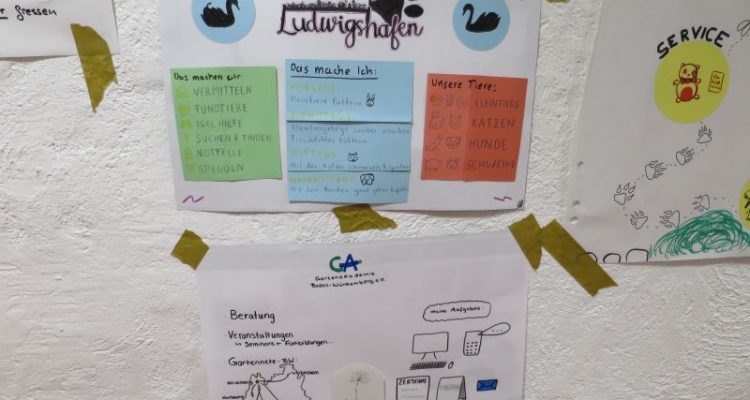 fressen
Ludwigshafen
Das machen wir:
VERMITTELN
FUNDTIERE
IGEL HILFE
SUCHEN & FINDEN
NOTFÄLLE
SPENDEN
Das mache Ich:
MORGENS:
Kleintiere füttern
VORMITTAGS:
Kleintiergehege sauber machen
Frischfutter füttern
MITTAGS:
Mit den Katzen
NACHMITTAGS:
Mit den Hunden
Unsere Tiere:
KLEINTIERE
KATZEN
HUNDE
SCHWEINE
SERVICE
GA
Gartenakademie
Baden-Württemberg e.V.
Beratung
Veranstaltungen
Seminare + Fortbildungen...
Gartennetz - BW
Meine Aufgaben
ZEITUNG